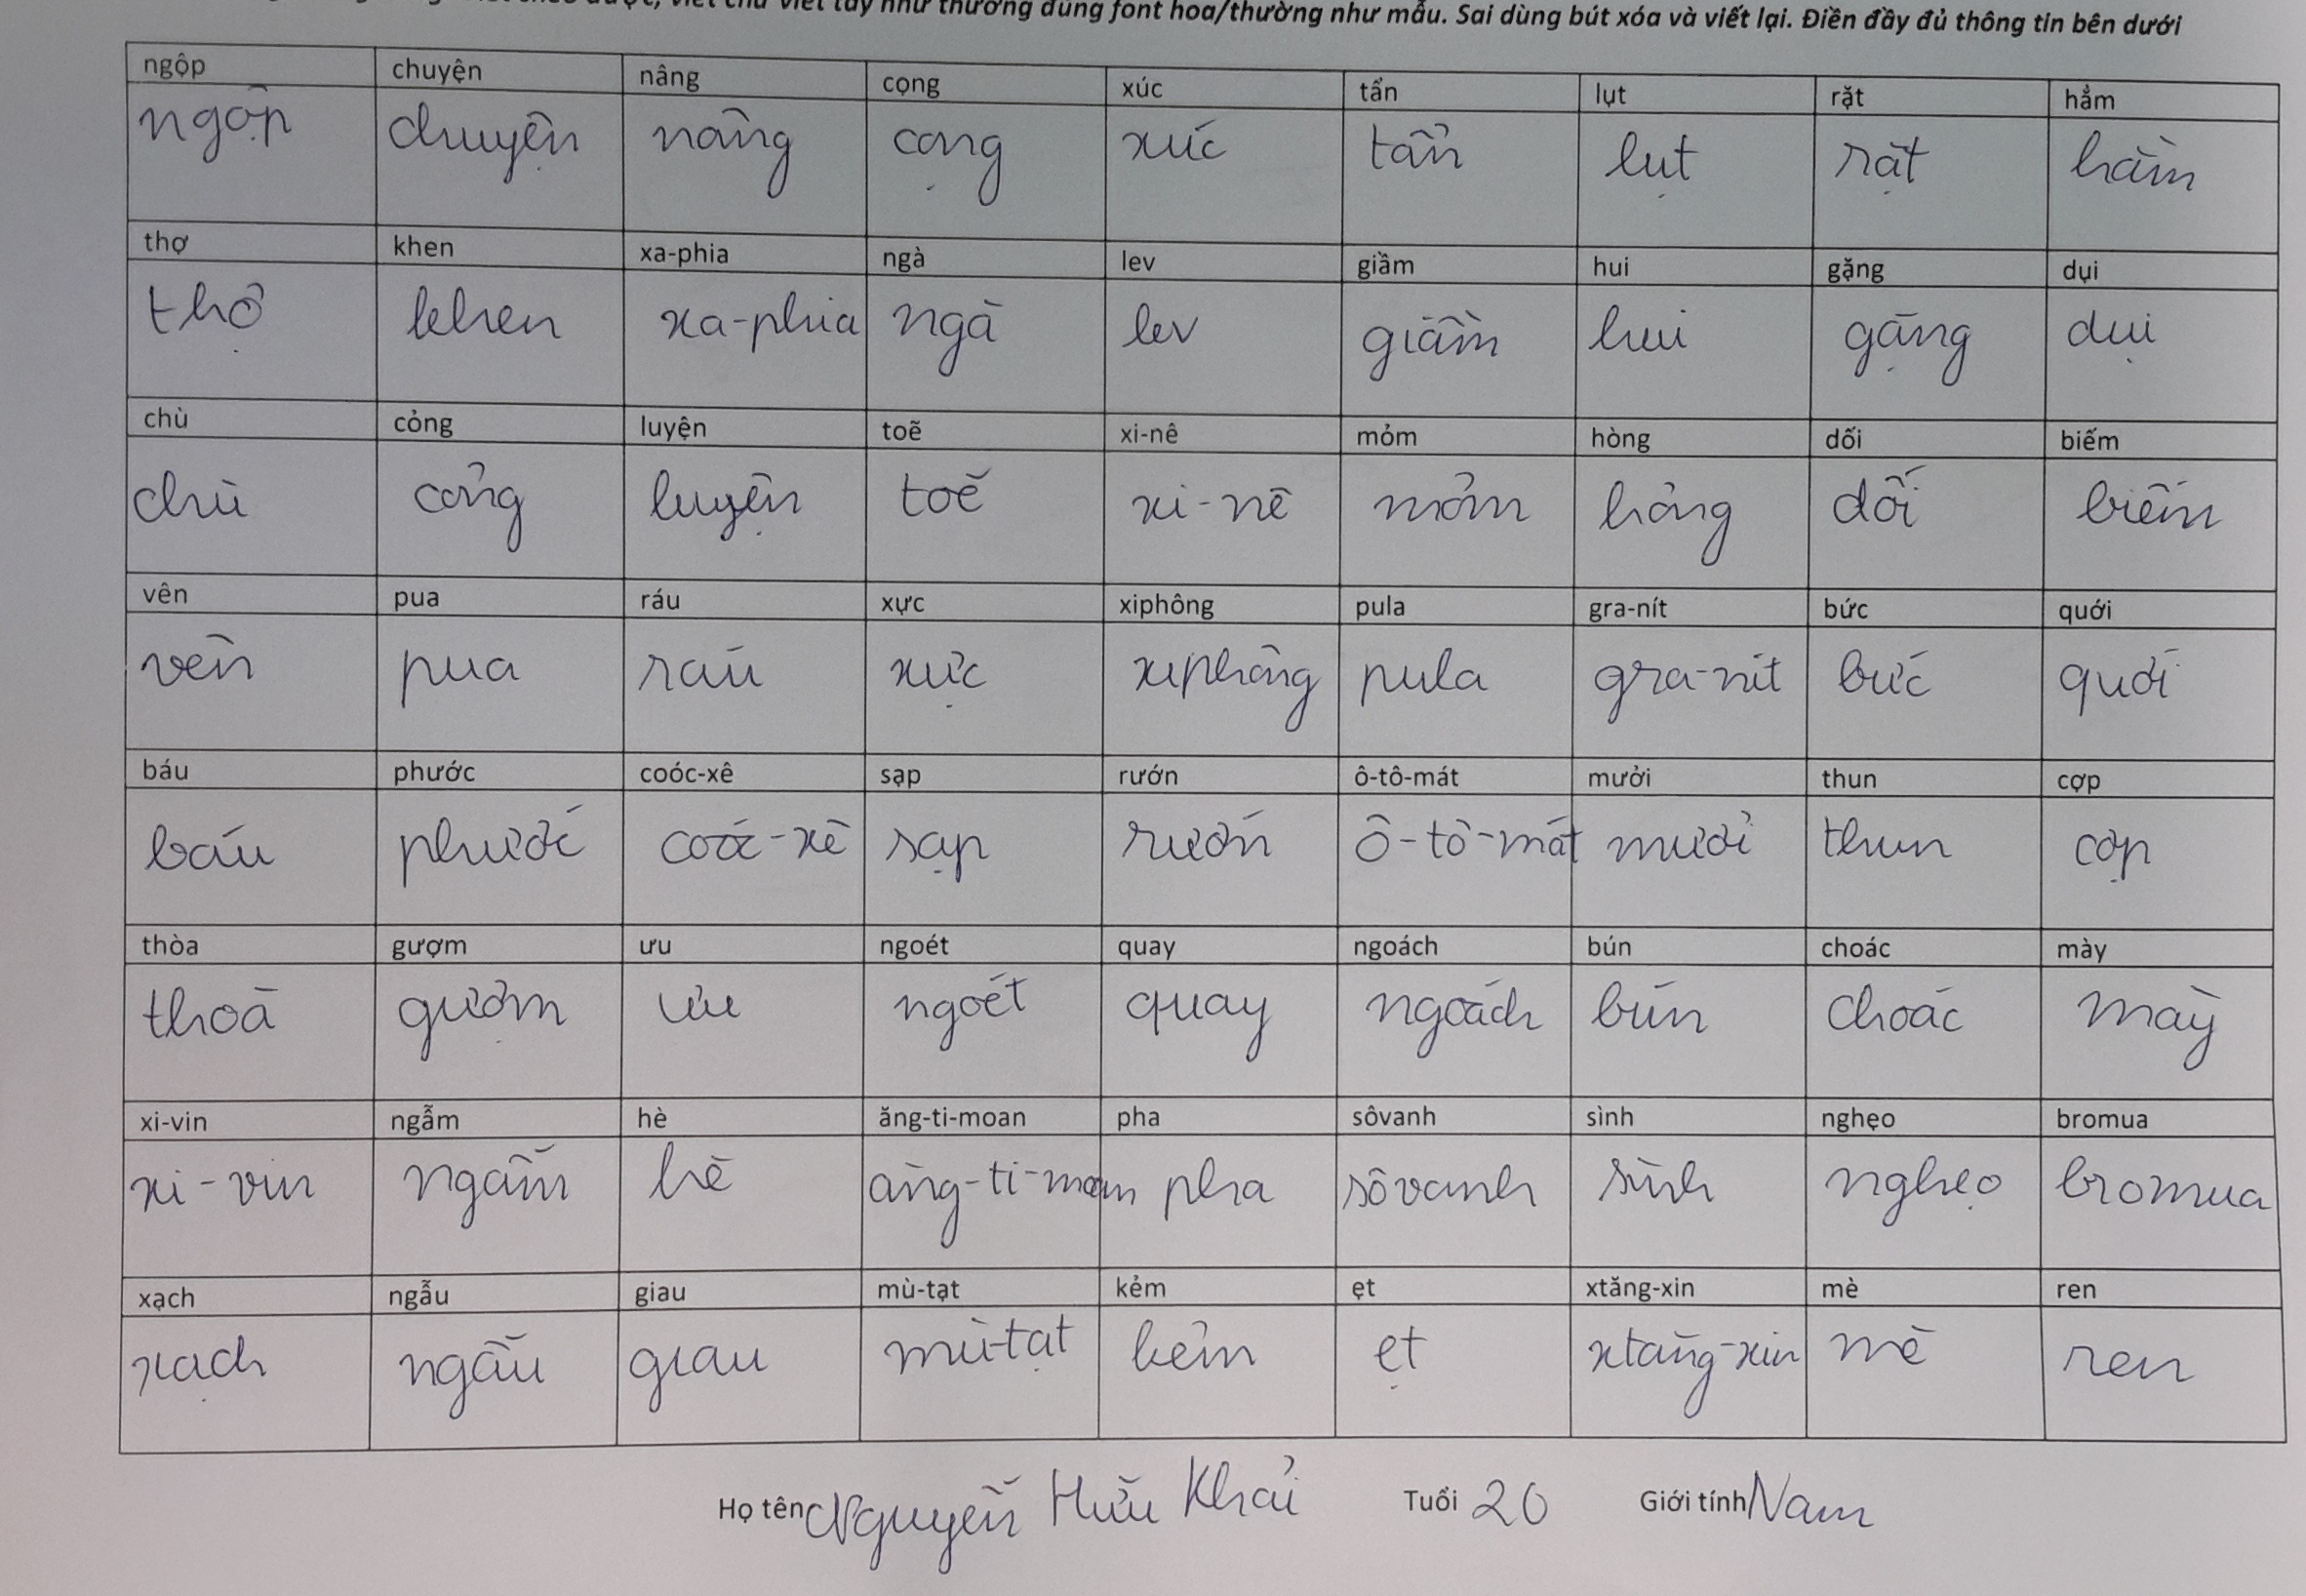 viết chữ viết tay như thường dùng font hoa/thường như mẫu. Sai dùng bút xóa và viết lại. Điền đầy đủ thông tin bên dưới
ngộp chuyện nâng cọng xúc tẩn lụt rặt hẳm
ngộp chuyện nâng cọng xúc tẩn lụt rặt hẳm
thợ khen xa-phia ngà lev giầm hui gặng dụi
thợ khen xa-phia ngà lev giầm hui gặng dụi
chù cỏng luyện toẽ xi-nê mỏm hòng dối biếm
chù cỏng luyện toẽ xi-nê mỏm hỏng dối biếm
vên pua ráu xực xiphông pula gra-nít bức quới
vên pua ráu xực xiphông pula gra-nít bức quới
báu phước coóc-xê sạp rướn ô-tô-mát mưởi thun cợp
báu phước coóc-xê sạp rướn ô-tô-mát mưởi thun cợp
thòa gượm ưu ngoét quay ngoách bún choác mày
thoà gượm ưu ngoét quay ngoách bún choác mày
xi-vin ngẫm hè ăng-ti-moan pha sôvanh sình nghẹo bromua
xi-vin ngẫm hè ăng-ti-moan pha sôvanh sình nghẹo bromua
xạch ngẫu giau mù-tạt kẻm ẹt xtăng-xin mè ren
xạch ngẫu giau mù-tạt kẻm ẹt xtăng-xin mè ren
Họ tên Nguyễn Hữu Khải Tuổi 20 Giới tính Nam